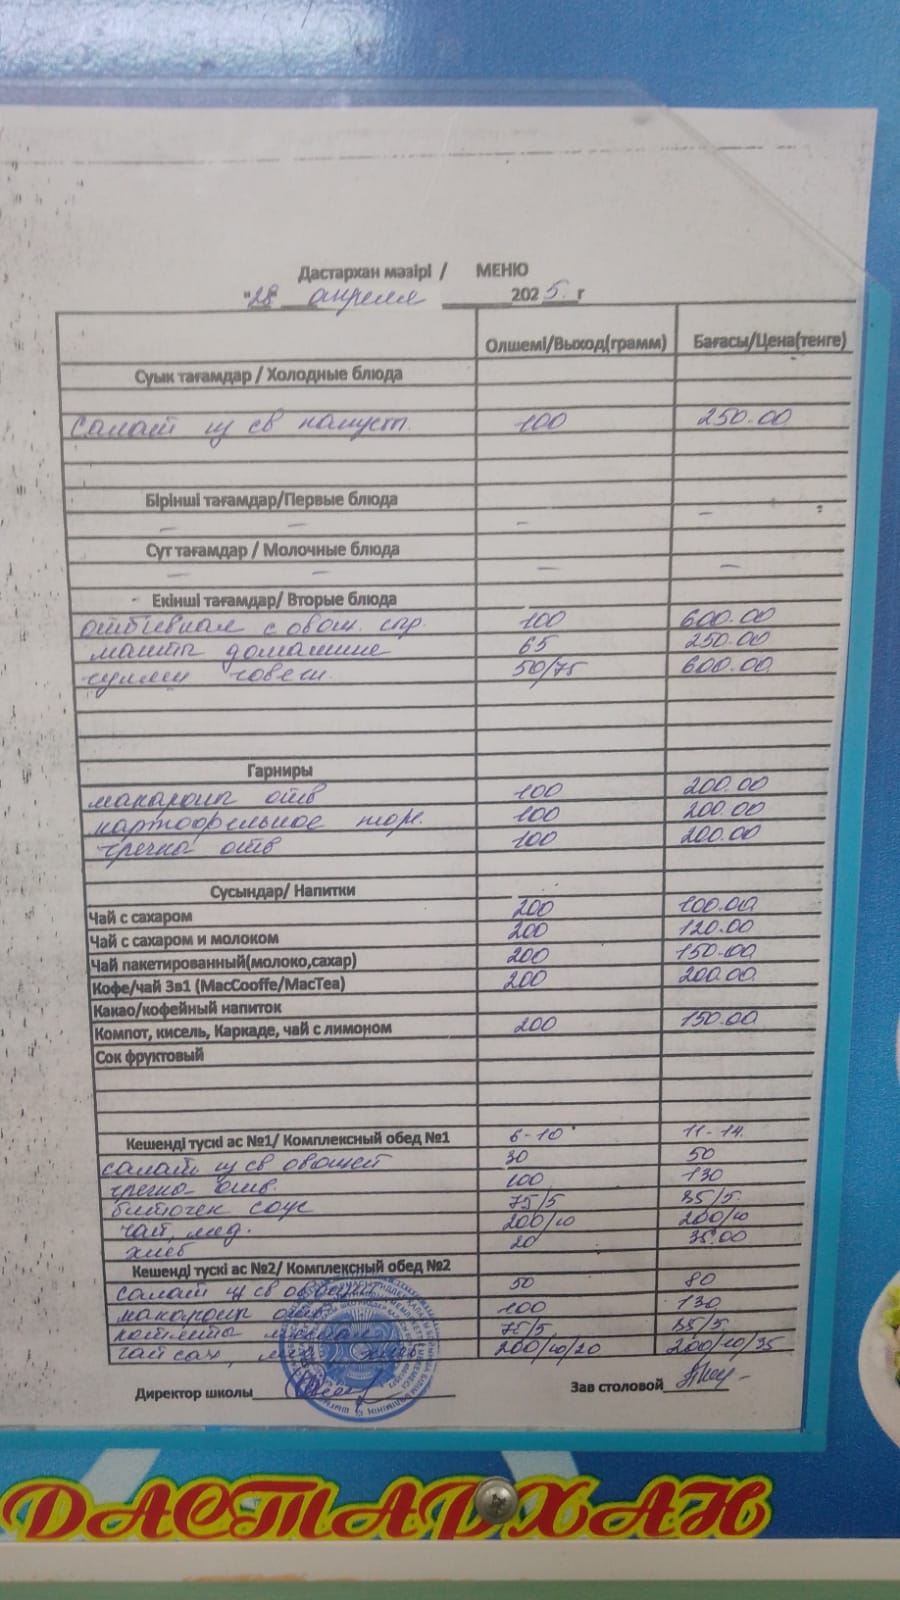 Дастархан мәзірі / МЕНЮ
"28" апреля 2025. г
Олшемі/Выход(грамм) Бағасы/Цена(тенге)
Суык тағамдар / Холодные блюда
Салат из св капуст. 100 250.00
Бірінші тағамдар/Первые блюда
— — — —
Сут тағамдар / Молочные блюда
— — — —
Екінші тағамдар/ Вторые блюда
отбивная с овощ. 100 600.00
манты домашние 65 250.00
гуляш говяж. 50/75 600.00
Гарниры
макароны отв 100 200.00
картофельное пюре. 100 200.00
гречка отв 100 200.00
Сусындар/ Напитки
Чай с сахаром 200 100.00
Чай с сахаром и молоком 200 120.00
Чай пакетированный(молоко,сахар) 200 150.00
Кофе/чай 3в1 (MacCooffe/MacTea) 200 200.00
Какао/кофейный напиток
Компот, кисель, Каркаде, чай с лимоном 200 150.00
Сок фруктовый
Кешенді тускі ас №1/ Комплексный обед №1 6-10 11-14.
салат из св овощей 30 50
гречка отв. 100 130
биточек соус 75/5 85/5
чай, мед. 200/10 200/10
хлеб 20 35.00
Кешенді тускі ас №2/ Комплексный обед №2
салат из св 50 80
макароны отв 100 130
котлета 75/5 85/5
чай сах, хлеб 200/10/20 200/10/35
Директор школы Зав столовой
ДАСТАРХАН